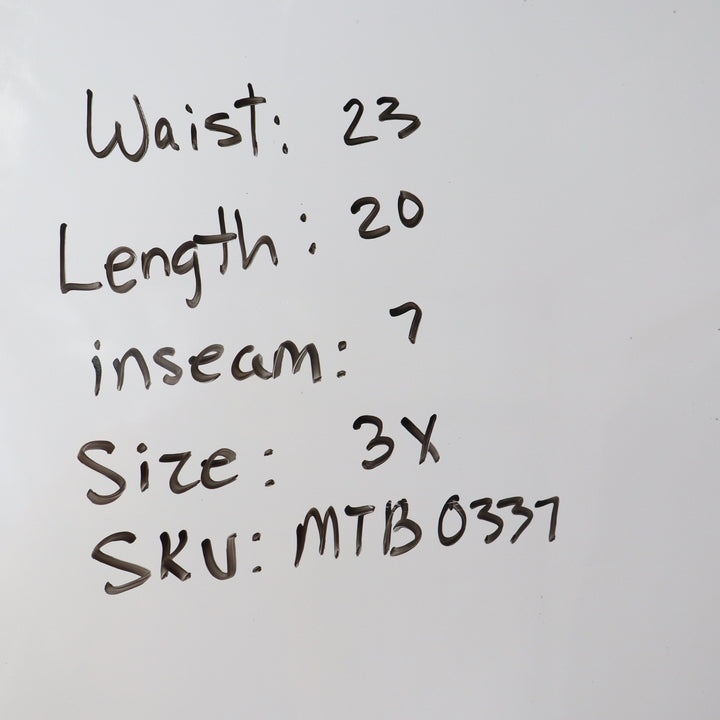 Waist: 23
Length: 20
inseam: 7
Size: 3X
SKU: MTB0337